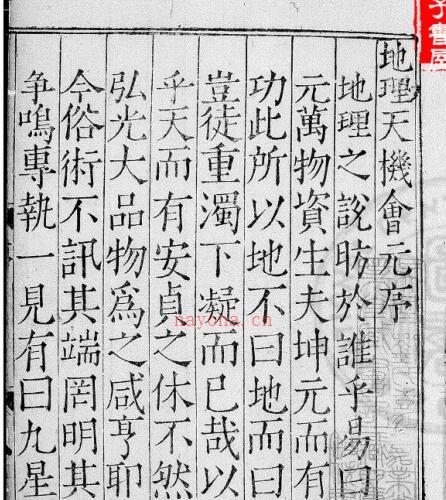 地理天機會元序
地理之說昉於誰乎易曰
元萬物資生夫坤元而有
功此所以地不曰地而曰
豈徒重濁下凝而已哉以
乎天而有安貞之休不然
弘光大品物爲之咸亨耶
今俗術不訊其端罔明其
争鳴專執一見有曰九星
nayona.cn
書屋